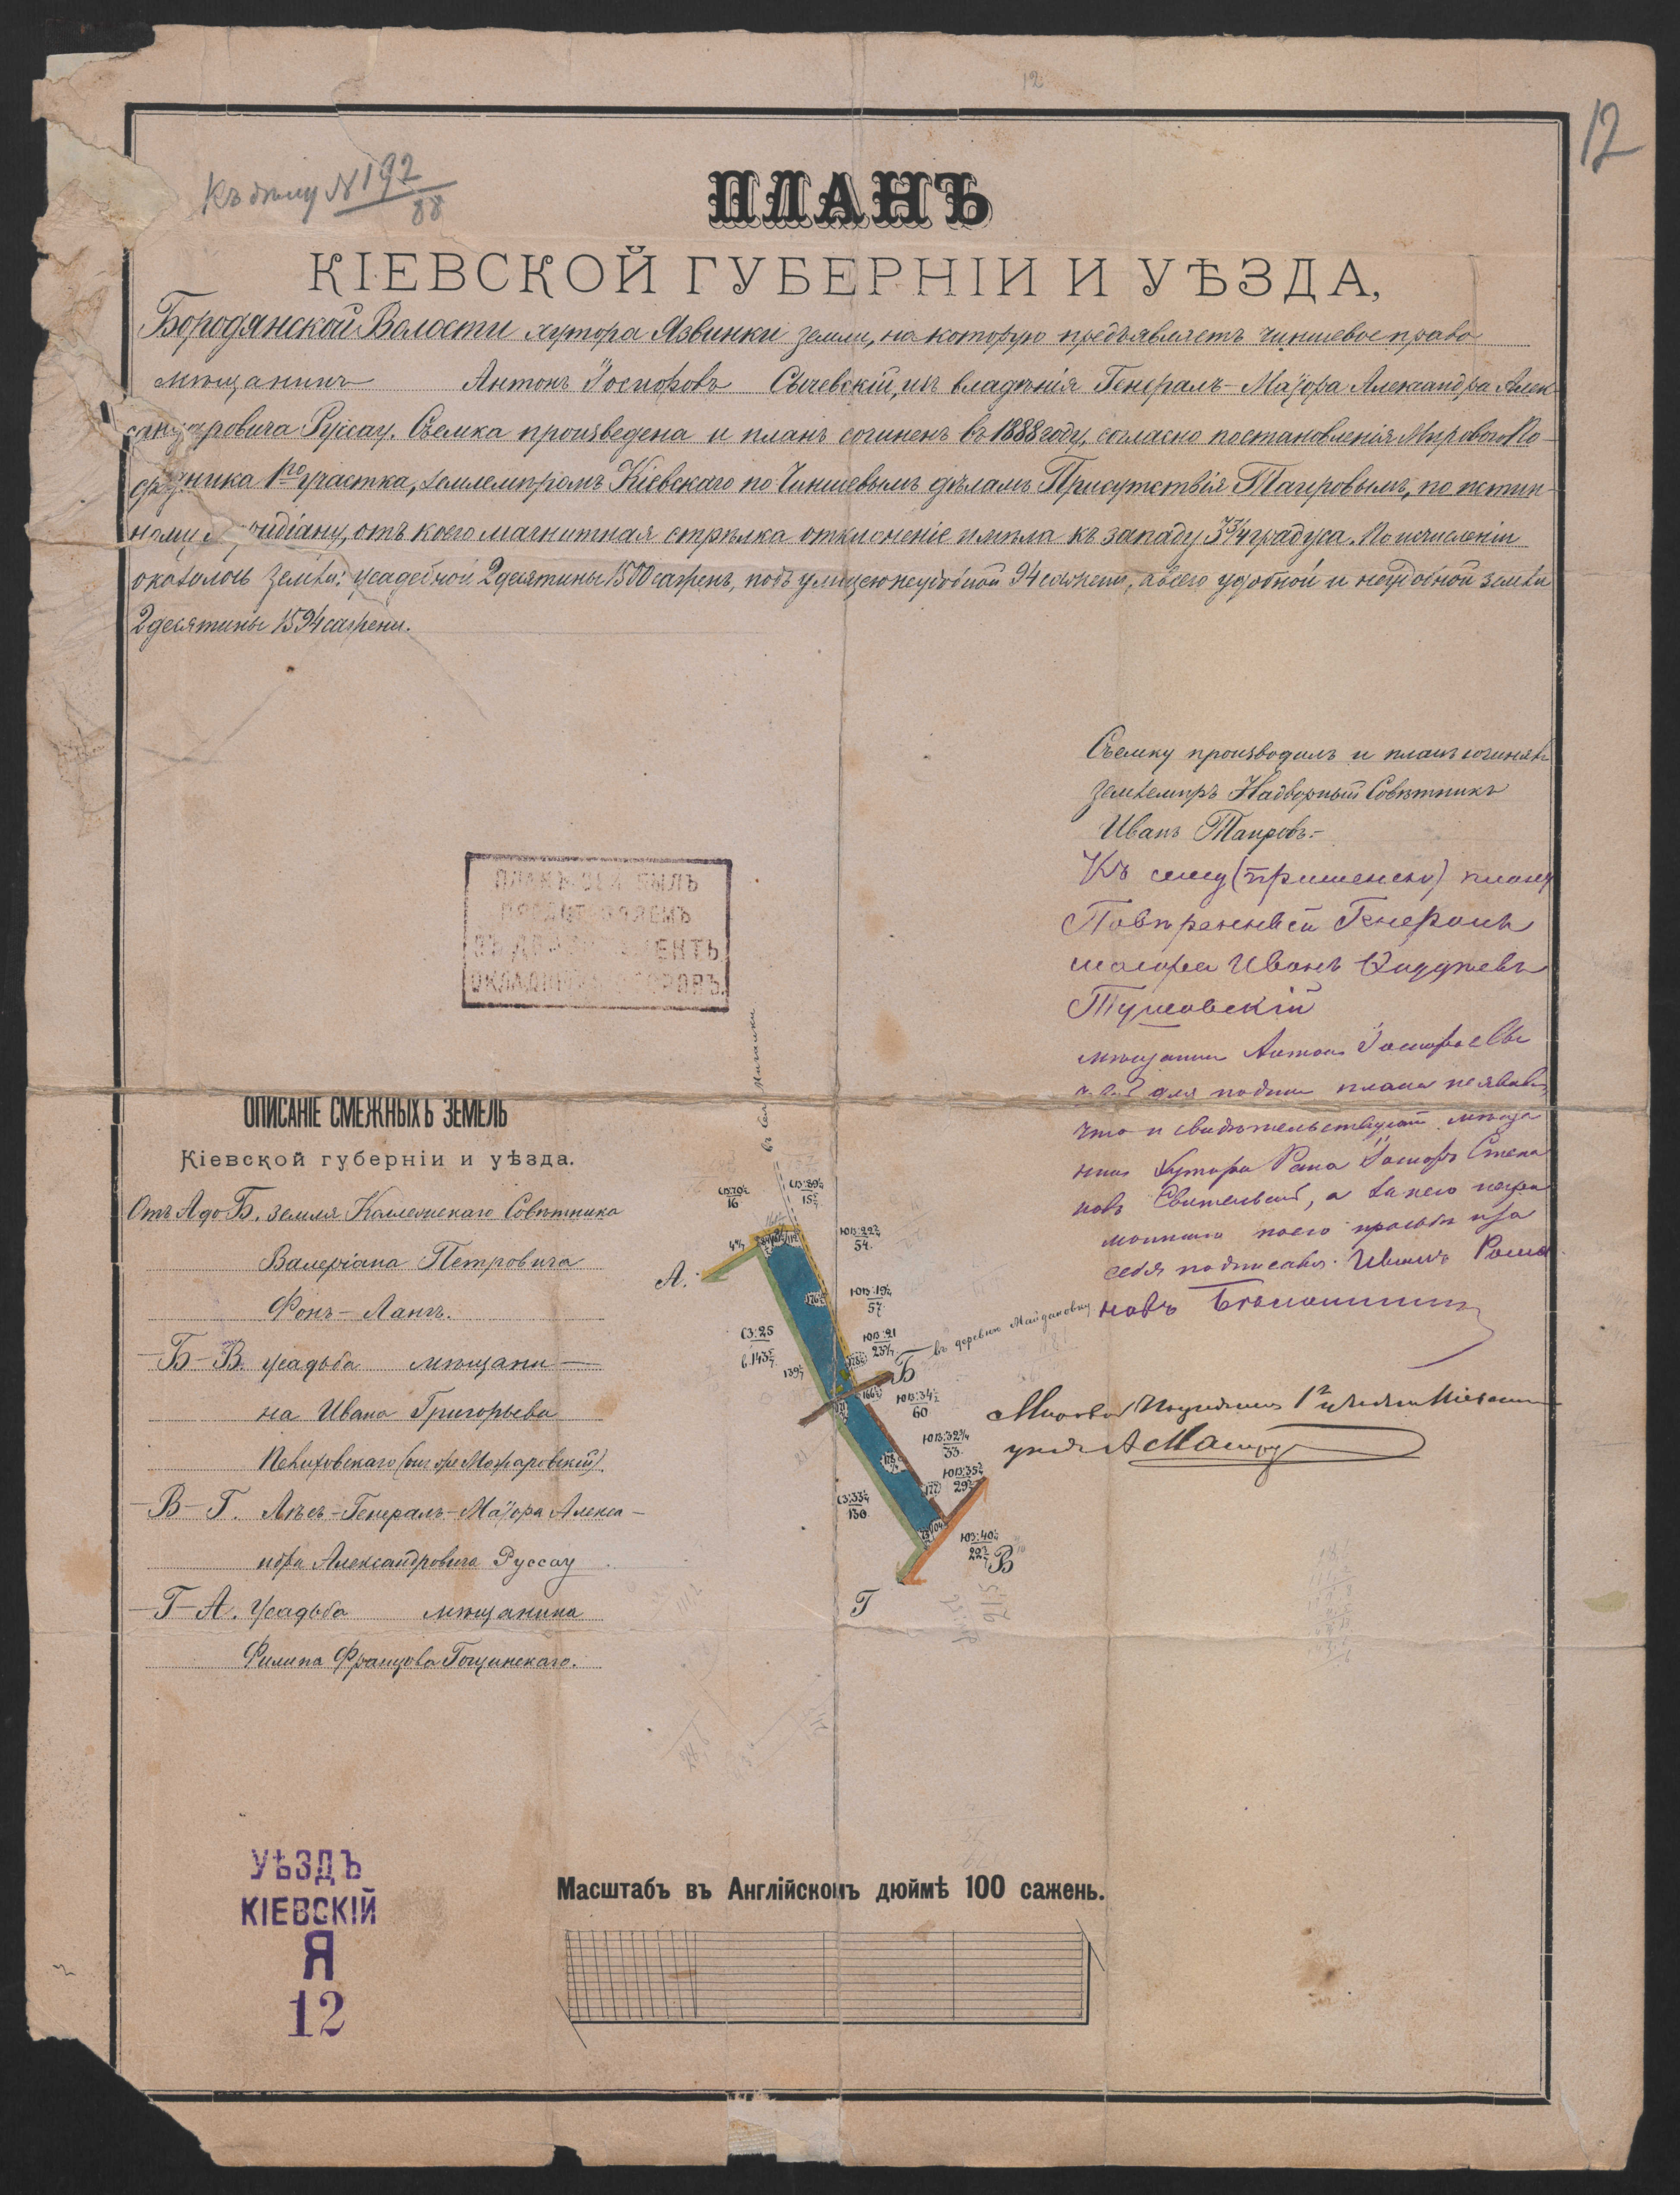 12
12
Къ дѣлу № 192/88
ПЛАНЪ
КІЕВСКОЙ ГУБЕРНІИ И УѢЗДА,
Бородянской Волости хутора Язвинки земли, на которую предъявляетъ чиншевое право
мѣщанинъ Антонъ Іосифовъ Сычевскій, изъ владѣнія Генералъ-Маіора Александра Алек-
сандровича Руссау. Съемка произведена и планъ сочиненъ въ 1888 году, согласно постановленія Мирового По-
средника 1го участка, землемѣромъ Кіевскаго по Чиншевымъ дѣламъ Присутствія Таировымъ, по истин-
ному меридіану, отъ коего магнитная стрѣлка отклоненіе имѣла къ западу 3¾ градуса. По исчисленіи
оказалось земли: усадебной 2 десятины 1500 сажень, подъ улицею неудобной 94 сажени, а всего удобной и неудобной земли
2 десятины 1594 сажени.
Съемку производилъ и планъ сочинялъ
Землемѣръ Надворный Совѣтникъ
Иванъ Таировъ.-
Къ сему плану
Повѣренный Генералъ
маіора Иванъ
Тушовскій
мѣщанинъ Антонъ Іосифовъ Сы
для подписи плана не явился
что и свидѣтельствуетъ мѣща
нинъ хутора Іосифъ Степа
новъ, а за него негра
мотнаго по его просьбѣ и за
себя подписался Иванъ Рома
новъ
Мировой Посредникъ 1го участка Кіевскаго
уѣзда А
ПЛАНЪ СЕЙ БЫЛЪ
ПРЕДЪЯВЛЯЕМЪ
ВЪ ДЕПАРТАМЕНТЪ
ОКЛАДНЫХЪ СБОРОВЪ.
ОПИСАНІЕ СМЕЖНЫХЪ ЗЕМЕЛЬ
Кіевской губерніи и уѣзда.
Отъ А до Б. земля Коллежскаго Совѣтника
Валеріана Петровича
Фонъ-Лангъ.
-Б-В. усадьба мѣщани-
на Ивана Григорьева
-В-Г. Лѣсъ-Генералъ-Маіора Алекса-
ндра Александровича Руссау
-Г-А. Усадьба мѣщанина
Филипа Францова Гощинскаго.
въ деревню Майдановку
А.
Б
В
Г
СЗ:25
ЮВ:21
60
33
130
54
57
16
УѢЗДЪ
КІЕВСКІЙ
Я
12
Масштабъ въ Англійскомъ дюймѣ 100 сажень.